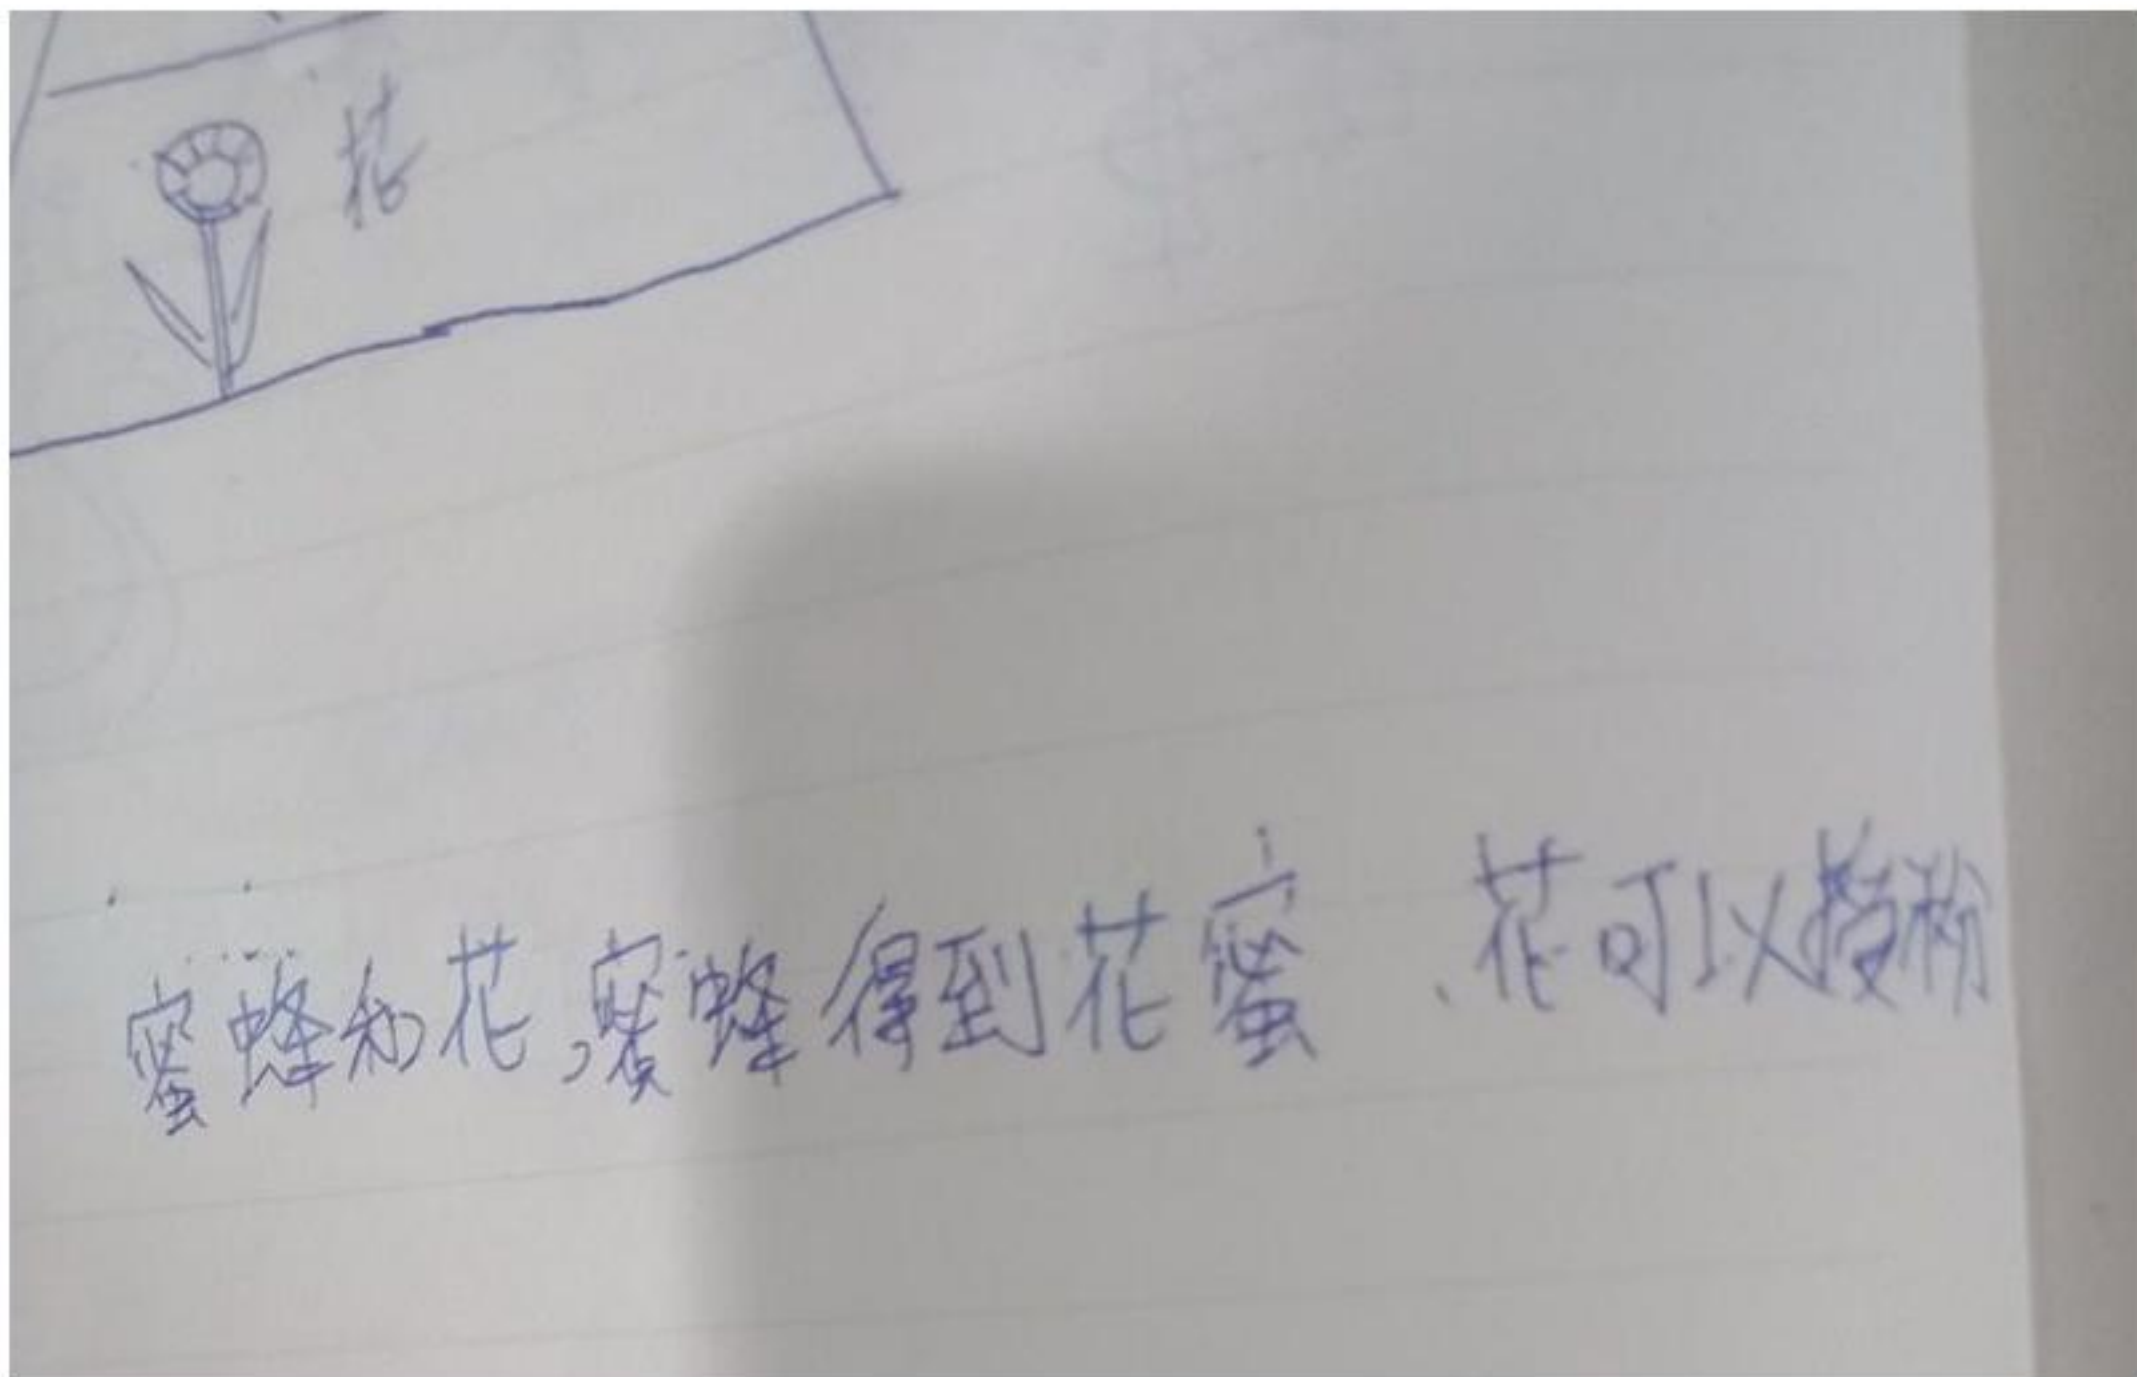 花
蜜蜂和花,蜜蜂得到花蜜、花可以授粉